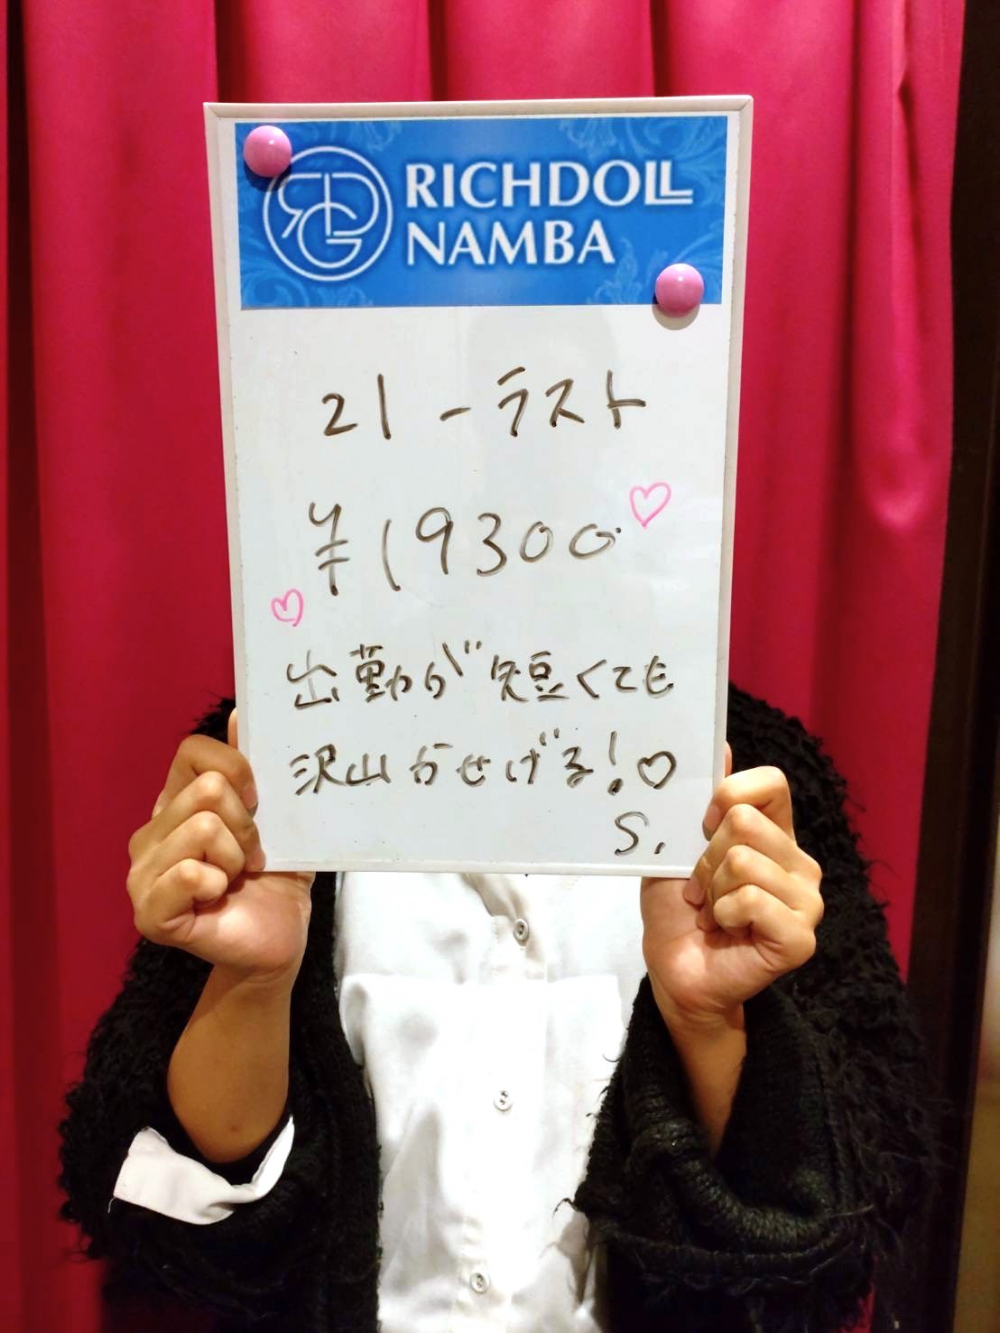 RICHDOLL
NAMBA
21 - ラスト
¥19300
出勤が短くても
沢山かせげる!♡
S.